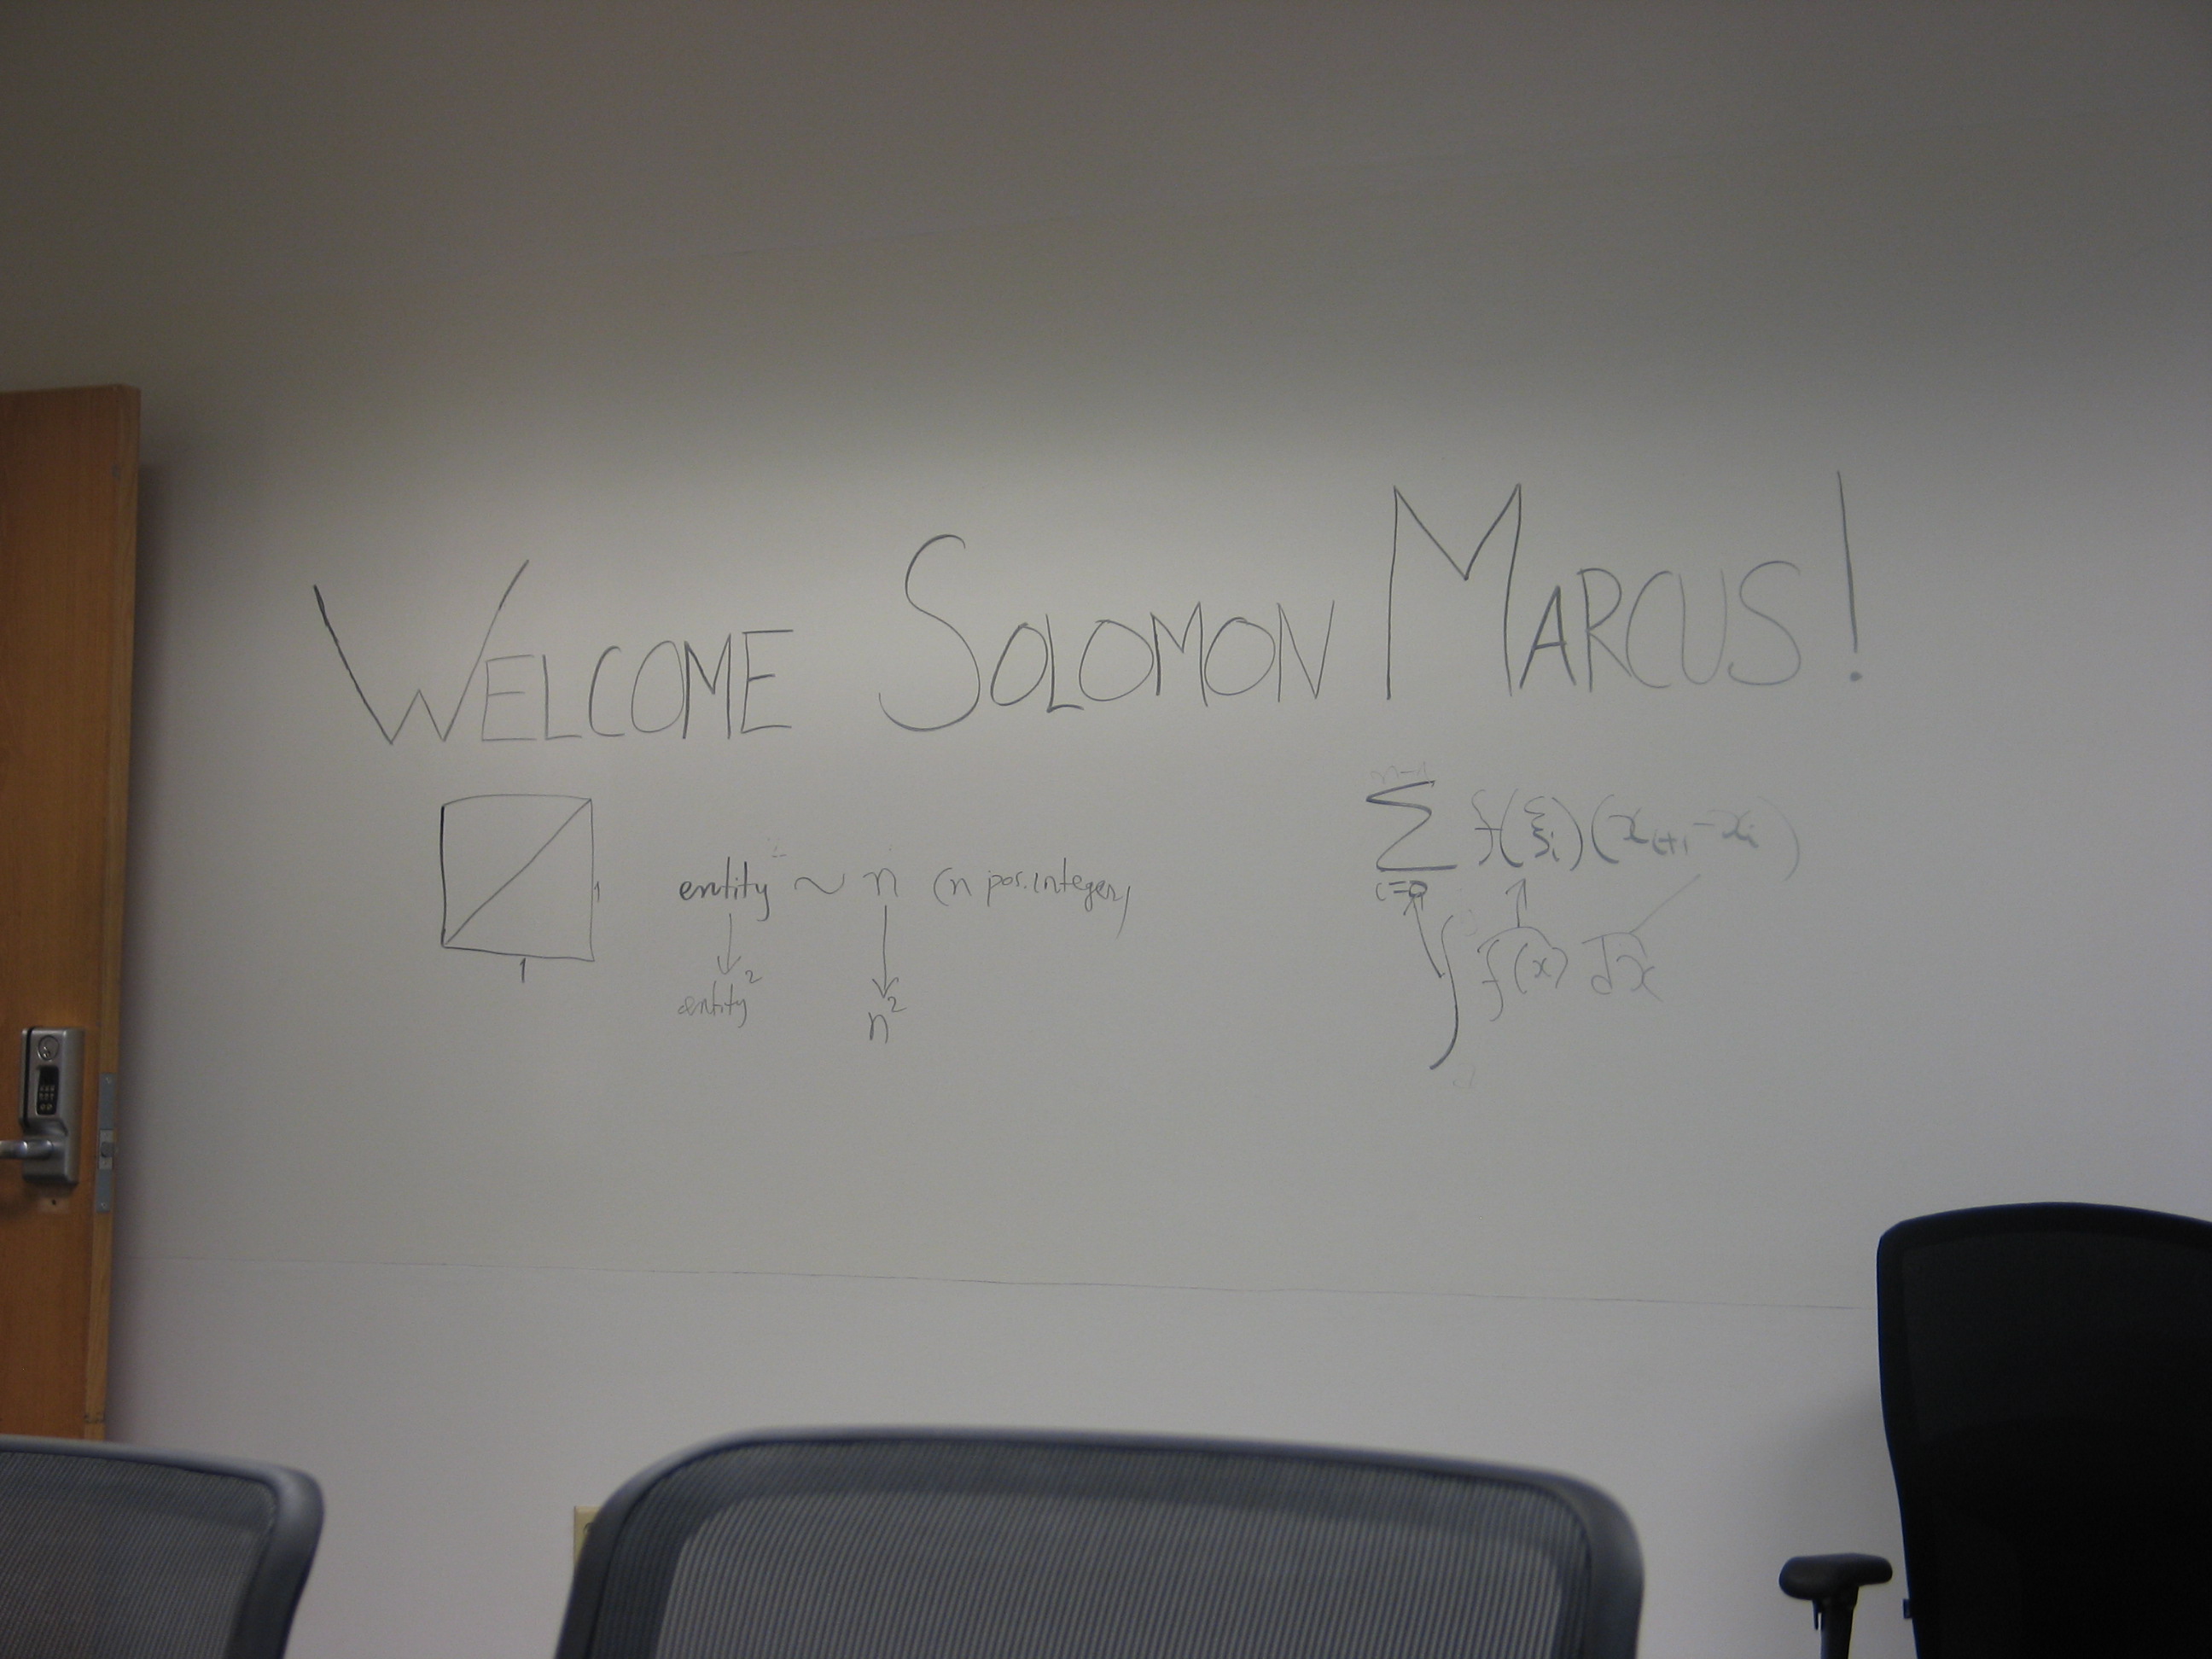 WELCOME SOLOMON MARCUS!
1
1
entity ~ n (n pos. integer)
entity²
n²
∑ f(ξᵢ)(xᵢ₊₁ - xᵢ)
i=0
∫ f(x) dx